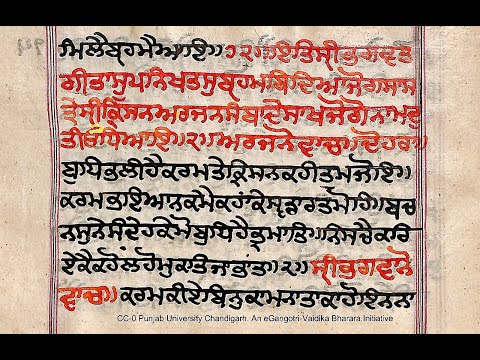 ਮਿਲੈਬ੍ਰਹਮੈਆਇ॥੭੨॥ਇਤਿਸ੍ਰੀਭਗਵਤ
ਗੀਤਾਸੁਪਨਿਖਤਸੁਬ੍ਰਹਮਬਿਦਿਆਜੋਗਸਾਸ
ਤ੍ਰੇਸ੍ਰੀਕ੍ਰਿਸਨਅਰਜਨਸੰਬਾਦੇਸਾਖਜੋਗੋਨਾਮਦੁ
ਤੀਓਧਿਆਇ॥੨॥ਅਰਜਨੋਵਾਚ॥ਦੋਹਰਾ॥
ਬੁਧਿਤਲੀਹੈਕਰਮਤੇਕ੍ਰਿਸਨਕਹੀਤੁਮਜੋਇ॥
ਕਰਮਭਾਇਆਨਕਮੈਕਹਾਂਕੇਸ੍ਵਡਾਰਤਮੋਹਿ॥੧॥ਬਚ
ਨਸੁਨੇਸੰਦੇਹਕੇਮੋਬੁਧਿਹੈਭ੍ਰਮਾਤਿ॥ਨਿਸਚੈਕਰਿ
ਏਕੈਕਹੋਲਹੋਮੁਕਤਿਜਾਭਾਂਤਿ॥੨॥ਸ੍ਰੀਭਗਵਾਨੋ
ਵਾਚ॥ਕਰਮਕੀਏਬਿਨੁਕਾਮਨਾਤਾਕਾਹੋਇਨਨਾ
CC-0 Punjab University Chandigarh. An eGangotri-Vaidika Bharara Initiative